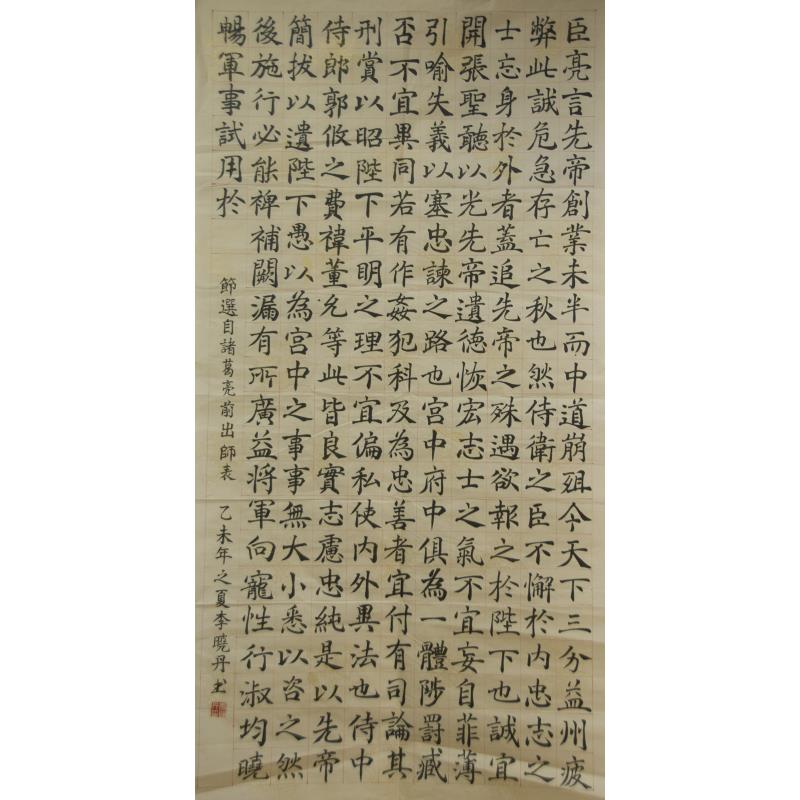 臣亮言先帝創業未半而中道崩殂今天下三分益州疲
弊此誠危急存亡之秋也然侍衛之臣不懈於內忠志之
士忘身於外者蓋追先帝之殊遇欲報之於陛下也誠宜
開張聖聽以光先帝遺德恢宏志士之氣不宜妄自菲薄
引喻失義以塞忠諫之路也宮中府中俱為一體陟罰臧
否不宜異同若有作姦犯科及為忠善者宜付有司論其
刑賞以昭陛下平明之理不宜偏私使內外異法也侍中
侍郎郭攸之費禕董允等此皆良實志慮忠純是以先帝
簡拔以遺陛下愚以為宮中之事事無大小悉以咨之然
後施行必能裨補闕漏有所廣益將軍向寵性行淑均曉
暢軍事試用於
節選自諸葛亮前出師表 乙未年之夏李曉丹书